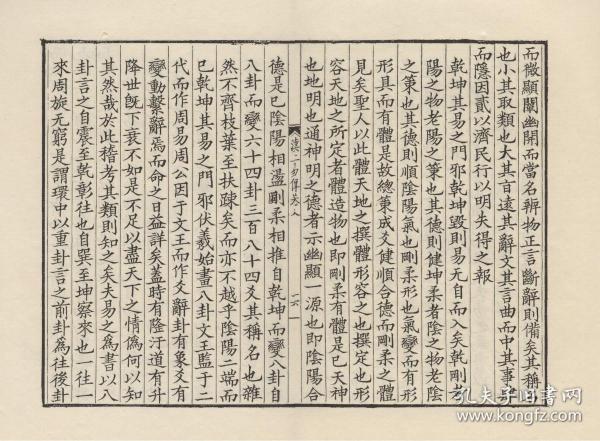 而微顯闡幽開而當名辨物正言斷辭則備矣其稱名
也小其取類也大其言遠其辭文其言曲而中其事肆
而隱因貳以濟民行以明失得之報
乾坤其易之門邪乾坤毀則易无自而入矣乾剛者
陽之物老陽之策也其德則健坤柔者陰之物老陰
之策也其德則順陰陽氣也剛柔形也氣變而有形
形具而有體是故總策成爻健順合德而剛柔之體
見矣聖人以此體天地之撰體形容之也撰定也形
容天地之所定者體造物也即剛柔有體是已天神
也地明也通神明之德者示幽顯一源也即陰陽合
漢上易傳卷八
六
德是已陰陽相盪剛柔相推自乾坤而變八卦自
八卦而變六十四卦三百八十四爻其稱名也雜
然不齊枝葉至扶疎矣而亦不越乎陰陽二端而
已乾坤其易之門邪伏羲始畫八卦文王監于二
代而作周易周公因于文王而作爻辭卦有象爻有
變動繫辭焉而命之日益詳矣蓋時有隆汙道有升
降世旣下衰不如是不足以盡天下之情僞何以知
其然哉於此稽考其類則知之矣夫易之爲書以八
卦言之自震至乾彰往也自巽至坤察來也一往一
來周旋无窮是謂環中以重卦言之前卦爲往後卦
孔夫子旧书网
www.kongfz.com